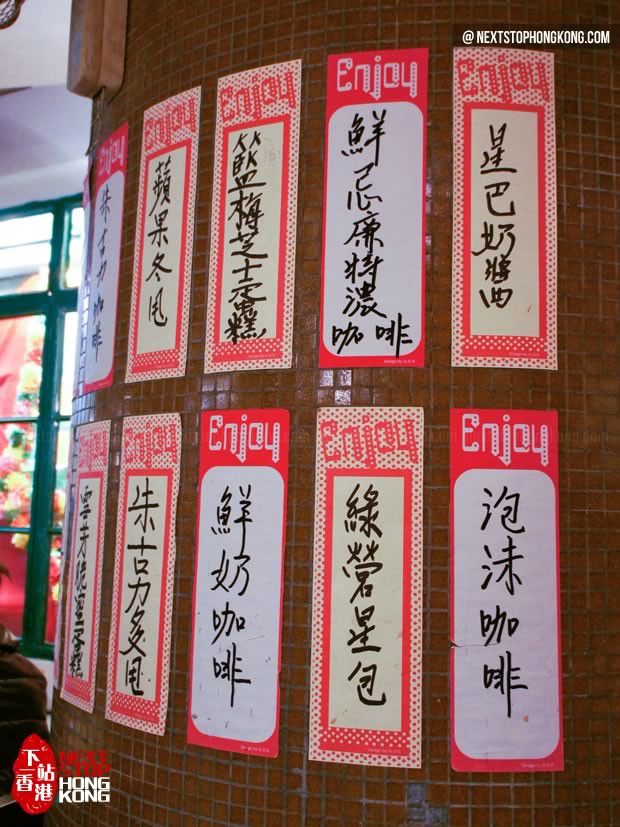 @ NEXTSTOPHONGKONG.COM
Enjoy
朱古力咖啡
Enjoy
蘋果冬甩
Enjoy
籃梅芝士蛋糕
Enjoy
鮮忌廉特濃
咖啡
Enjoy
星巴奶醬
Enjoy
蛋糕
Enjoy
朱古力多甩
Enjoy
鮮奶咖啡
Enjoy
綠營星包
Enjoy
泡沫咖啡
下一站香港
NEXT
STOP
HONG
KONG